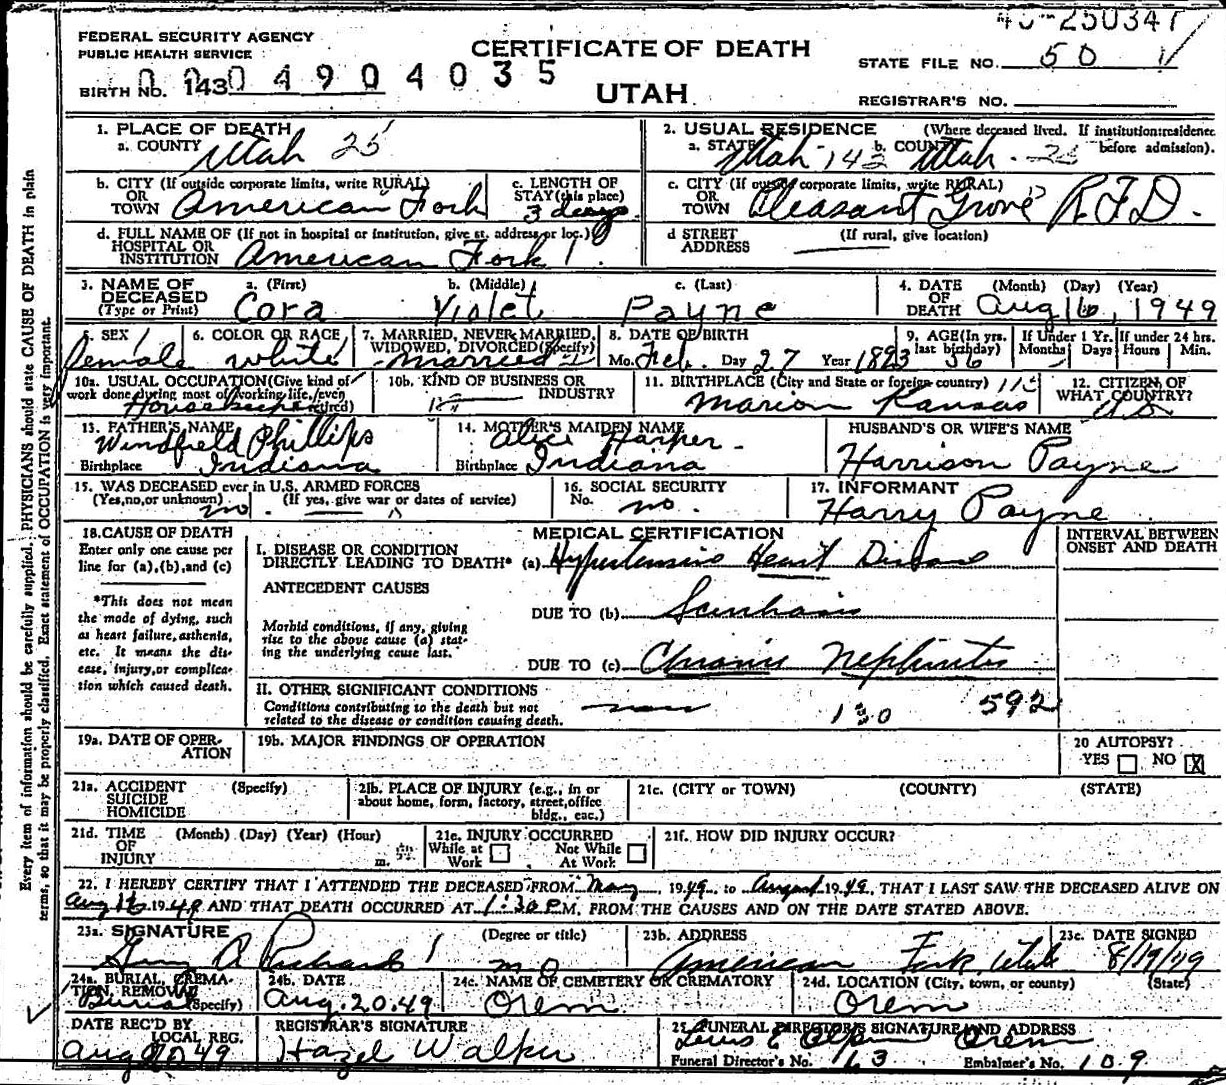 FEDERAL SECURITY AGENCY
PUBLIC HEALTH SERVICE
CERTIFICATE OF DEATH
UTAH
BIRTH NO. 143
0 0 0 4 9 0 4 0 3 5
STATE FILE NO. 50
REGISTRAR'S NO.
1. PLACE OF DEATH
a. COUNTY Utah 25
2. USUAL RESIDENCE (Where deceased lived. If institution:residence before admission).
a. STATE Utah 142 b. COUNTY Utah
b. CITY (If outside corporate limits, write RURAL) OR TOWN American Fork
c. LENGTH OF STAY (this place) 3 days
c. CITY (If outside corporate limits, write RURAL) OR TOWN Pleasant Grove RFD.
d. FULL NAME OF (If not in hospital or institution, give st. address or loc.) HOSPITAL OR INSTITUTION American Fork
d STREET ADDRESS (If rural, give location)
3. NAME OF DECEASED (Type or Print) a. (First) Cora b. (Middle) Violet c. (Last) Payne
4. DATE OF DEATH (Month) (Day) (Year) Aug 16, 1949
5. SEX female
6. COLOR OR RACE white
7. MARRIED, NEVER MARRIED, WIDOWED, DIVORCED (Specify) married
8. DATE OF BIRTH Mo. Feb. Day 27 Year 1893
9. AGE (In yrs. last birthday) 56
If Under 1 Yr. Months Days
If under 24 hrs. Hours Min.
10a. USUAL OCCUPATION (Give kind of work done during most of working life, even retired) Housekeeper
10b. KIND OF BUSINESS OR INDUSTRY
11. BIRTHPLACE (City and State or foreign country) Marion Kansas
12. CITIZEN OF WHAT COUNTRY?
13. FATHER'S NAME Windfield Phillips
Birthplace Indiana
14. MOTHER'S MAIDEN NAME Alice Harper
Birthplace Indiana
HUSBAND'S OR WIFE'S NAME Harrison Payne
15. WAS DECEASED ever in U.S. ARMED FORCES (Yes, no, or unknown) no. (If yes, give war or dates of service)
16. SOCIAL SECURITY No. no.
17. INFORMANT Harry Payne
18. CAUSE OF DEATH
Enter only one cause per line for (a), (b), and (c)
*This does not mean the mode of dying, such as heart failure, asthenia, etc. It means the disease, injury, or complication which caused death.
MEDICAL CERTIFICATION
INTERVAL BETWEEN ONSET AND DEATH
I. DISEASE OR CONDITION DIRECTLY LEADING TO DEATH* (a) Hypertensive Heart Disease
ANTECEDENT CAUSES
Morbid conditions, if any, giving rise to the above cause (a) stating the underlying cause last.
DUE TO (b)
DUE TO (c) Chronic Nephritis
II. OTHER SIGNIFICANT CONDITIONS
Conditions contributing to the death but not related to the disease or condition causing death. none
592
19a. DATE OF OPERATION
19b. MAJOR FINDINGS OF OPERATION
20 AUTOPSY? YES NO X
21a. ACCIDENT SUICIDE HOMICIDE (Specify)
21b. PLACE OF INJURY (e.g., in or about home, form, factory, street, office bldg., eac.)
21c. (CITY OR TOWN) (COUNTY) (STATE)
21d. TIME OF INJURY (Month) (Day) (Year) (Hour) m.
21e. INJURY OCCURRED While at Work Not While At Work
21f. HOW DID INJURY OCCUR?
22. I HEREBY CERTIFY THAT I ATTENDED THE DECEASED FROM May, 1949, to August 1949, THAT I LAST SAW THE DECEASED ALIVE ON
Aug 16 1949 AND THAT DEATH OCCURRED AT 1:30 P.M, FROM THE CAUSES AND ON THE DATE STATED ABOVE.
23a. SIGNATURE Guy A Richards (Degree or title) M D
23b. ADDRESS American Fork, Utah
23c. DATE SIGNED 8/19/49
24a. BURIAL, CREMATION, REMOVAL (Specify) Burial
24b. DATE Aug. 20. 49
24c. NAME OF CEMETERY OR CREMATORY Orem
24d. LOCATION (City, town, or county) (State) Orem
DATE REC'D BY LOCAL REG. Aug 20 49
REGISTRAR'S SIGNATURE Hazel Walker
25. FUNERAL DIRECTOR'S SIGNATURE AND ADDRESS Lewis E Orem
Funeral Director's No. 163 Embalmer's No. 109
Every item of information should be carefully supplied. PHYSICIANS should state CAUSE OF DEATH in plain
terms, so that it may be properly classified. Exact statement of OCCUPATION is very important.